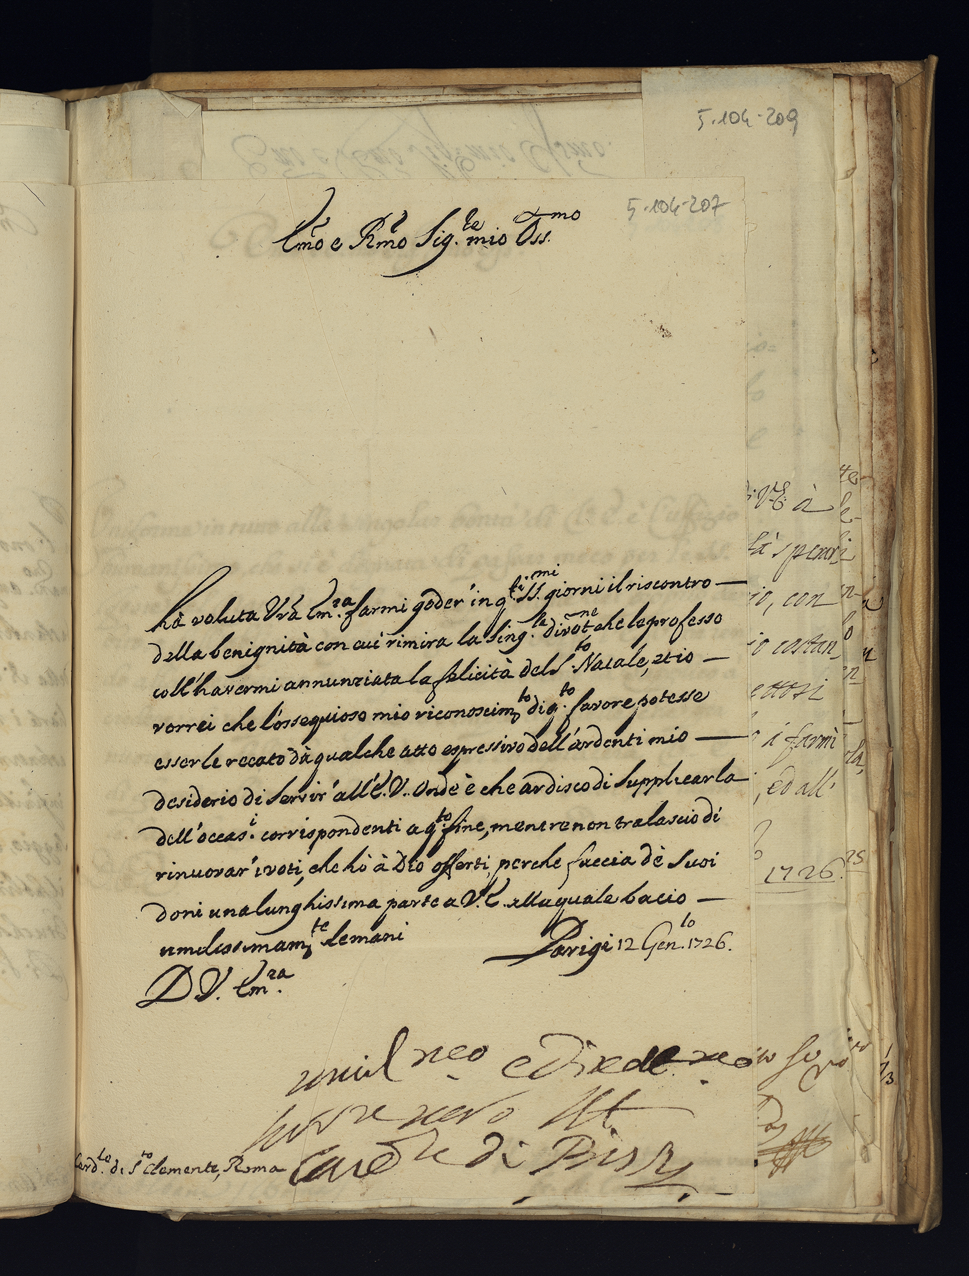 5.104-209
5.104-207
Em̃o e Rm̃o Sig.re mio Oss.mo
Hà voluta Vrã Em.ra farmi goder' in q.ti SS.mi giorni il riscontro
della benignità con cui rimira la sing.le divot.ne che le professo
coll'havermi annunziata la felicità del S.to Natale, et io
vorrei che l'ossequioso mio riconoscim.to di q.to favore potesse
esserle recato dà qualche atto espressivo dell'ardenti mio
desiderio di servir' all'E.V. Onde è che ardisco di supplicarla
dell'occas.i corrispondenti a q.to fine, mentre non tralascio di
rinuovar' i voti, che hò à Dio offerti, perche faccia dè suoi
doni una lunghissima parte a V.E. alla quale bacio
umilissimam.te le mani
Parigi 12 Gen.ro 1726.
D V. Em.ra
Card.le di S.to Clemente, Roma
Card.le di Bissy
V.E. à
io, con
io costan
i farmi
, ed all'
1726.